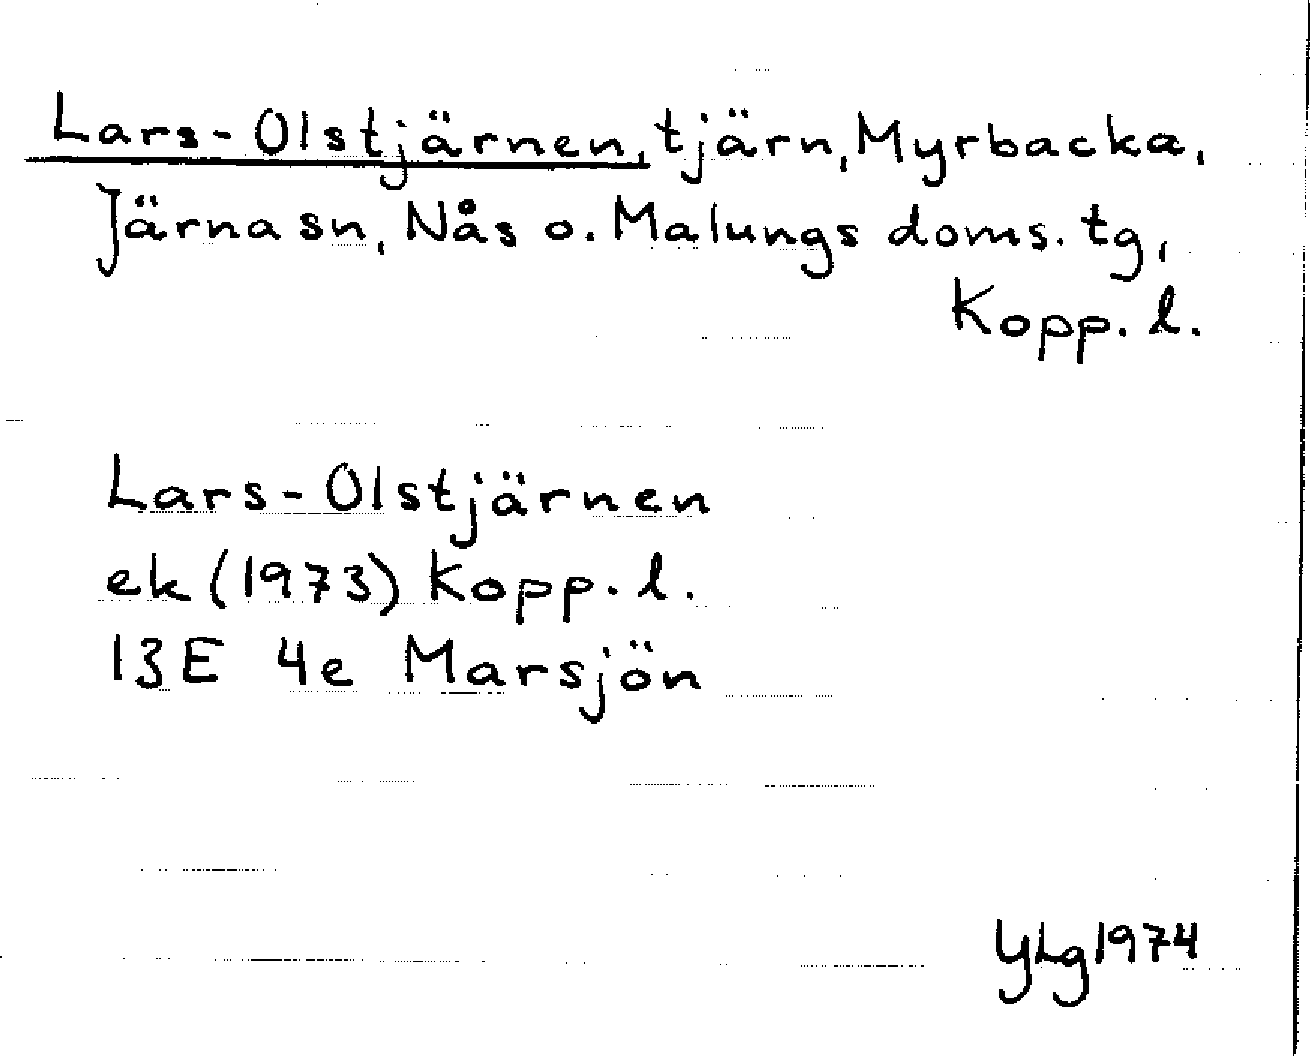 Lars-Olstjärnen, tjärn, Myrbacka,
Järna sn, Nås o. Malungs doms. tg,
Kopp. l.
Lars-Olstjärnen
ek (1973) Kopp. l.
13E 4e Marsjön
YLg 1974